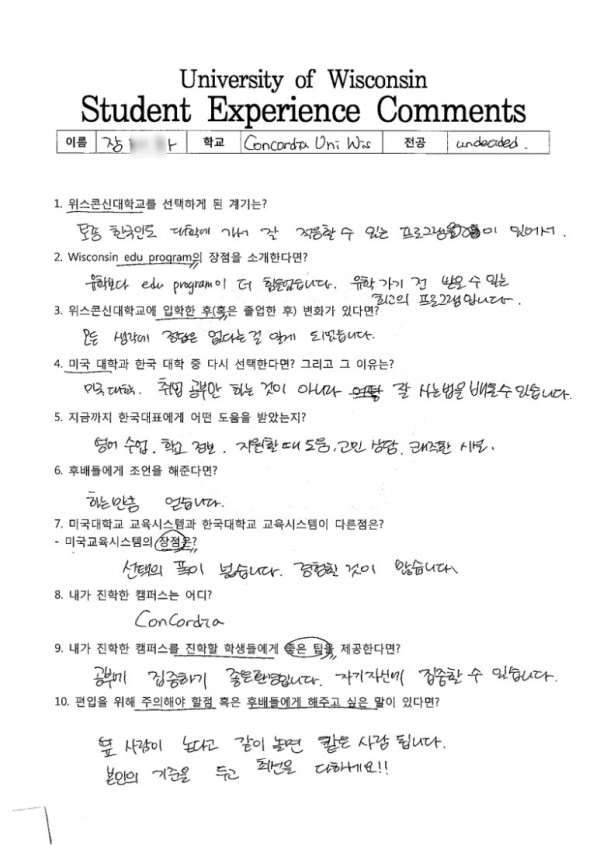 University of Wisconsin
Student Experience Comments
이름 장 학교 Concordia Uni Wis 전공 undecided.
1. 위스콘신대학교를 선택하게 된 계기는?
보통 한국인도 대학에 가서 잘 적응할 수 있는 프로그램이 있어서.
2. Wisconsin edu program의 장점을 소개한다면?
유학보다 edu program이 더 힘듭니다. 유학 가기 전 배울 수 있는
최고의 프로그램입니다.
3. 위스콘신대학교에 입학한 후(혹은 졸업한 후) 변화가 있다면?
모든 생각에 정답은 없다는걸 알게 되었습니다.
4. 미국 대학과 한국 대학 중 다시 선택한다면? 그리고 그 이유는?
미국대학. 취업 공부만 하는 것이 아니라 잘 사는법을 배울수있습니다.
5. 지금까지 한국대표에게 어떤 도움을 받았는지?
영어 수업. 학교 정보. 지원할 때 도움. 고민 상담. 쾌적한 시설.
6. 후배들에게 조언을 해준다면?
하는만큼 얻습니다.
7. 미국대학교 교육시스템과 한국대학교 교육시스템이 다른점은?
- 미국교육시스템의 장점은?
선택의 폭이 넓습니다. 경험할 것이 많습니다.
8. 내가 진학한 캠퍼스는 어디?
Concordia
9. 내가 진학한 캠퍼스를 진학할 학생들에게 좋은 팁을 제공한다면?
공부에 집중하기 좋은환경입니다. 자기자신에 집중할 수 있습니다.
10. 편입을 위해 주의해야 할점 혹은 후배들에게 해주고 싶은 말이 있다면?
옆 사람이 논다고 같이 놀면 같은 사람 됩니다.
본인의 기준을 두고 최선을 다하세요!!